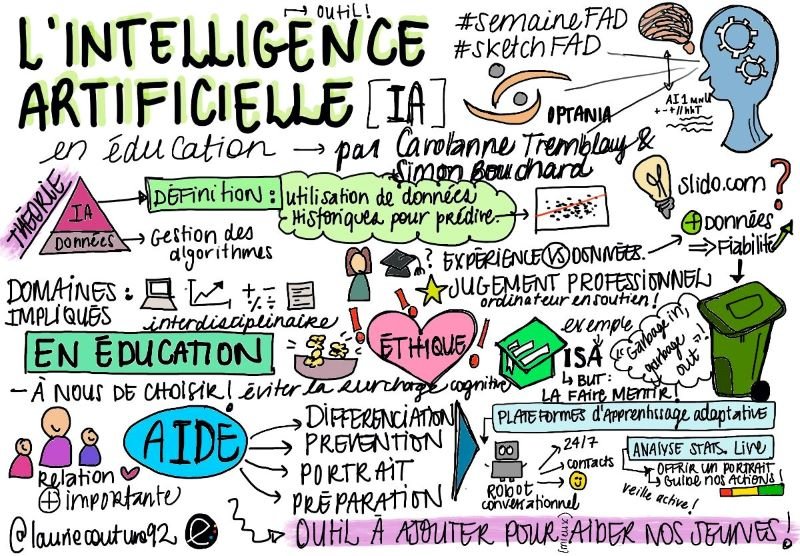 → OUTIL!
L'INTELLIGENCE
ARTIFICIELLE [IA]
#semaineFAD
#sketchFAD
OPTANIA
en éducation → par Carolanne Tremblay &
Simon Bouchard
THÉORIE
IA
DONNÉES
DÉFINITION :
utilisation de données
Historiques pour prédire.
→ Gestion des
algorithmes
slido.com ?
+ Données
⇒ Fiabilité
? EXPÉRIENCE VS DONNÉES.
JUGEMENT PROFESSIONNEL
ordinateur en soutien!
DOMAINES :
IMPLIQUÉS
interdisciplinaire
EN ÉDUCATION
ÉTHIQUE
exemple
ISA
↳ BUT:
LA FAIRE MENTIR!
"Garbage in,
garbage
out"!
- À NOUS DE CHOISIR! éviter la surcharge cognitive
Relation
+ importante
AIDE
DIFFÉRENCIATION
PRÉVENTION
PORTRAIT
PRÉPARATION
PLATEFORMES d'Apprentissage adaptative
Robot
conversationnel
24/7
contacts
ANALYSE STATS. Live
OFFRIR UN PORTRAIT
GUIDE NOS ACTIONS
veille active!
@lauriecouture92
OUTIL À AJOUTER POUR (mieux) AIDER NOS JEUNES!